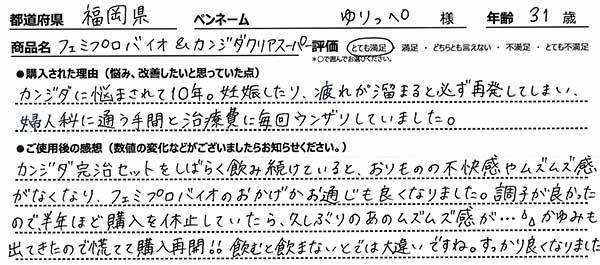 都道府県 福岡県 ペンネーム ゆりっぺ 様 年齢 31 歳
商品名 フェミプロバイオ&カンジダクリアスーパー 評価 とても満足 ・ 満足 ・ どちらとも言えない ・ 不満足 ・ とても不満足
*○で囲んでお選びください。
●購入された理由（悩み、改善したいと思っていた点）
カンジダに悩まされて10年。妊娠したり、疲れが溜まると必ず再発してしまい、
婦人科に通う手間と治療費に毎回ウンザリしていました。
●ご使用後の感想（数値の変化などがございましたらお知らせください。）
カンジダ完治セットをしばらく飲み続けていると、おりものの不快感やムズムズ感
がなくなり、フェミプロバイオのおかげかお通じも良くなりました。調子が良かった
ので、半年ほど購入を休止していたら、久しぶりのあのムズムズ感が…。かゆみも
出てきたので慌てて購入再開!! 飲むと飲まないとでは大違いですね。すっかり良くなりました